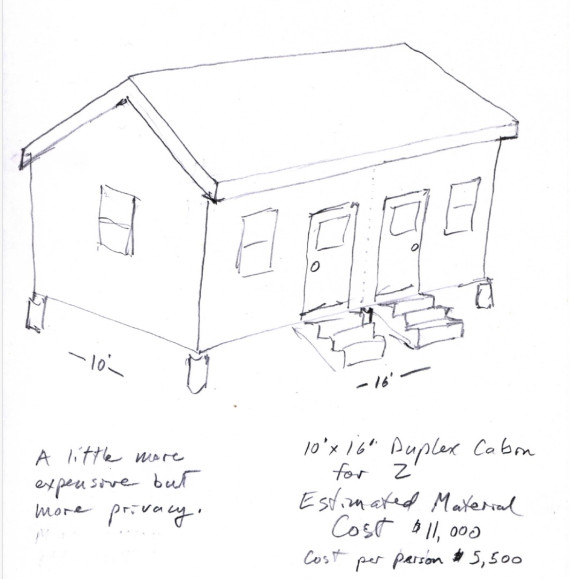 10'
16'
A little more
expensive but
more privacy.
10' x 16' Duplex Cabin
for 2
Estimated Material
Cost $11,000
Cost per person $5,500